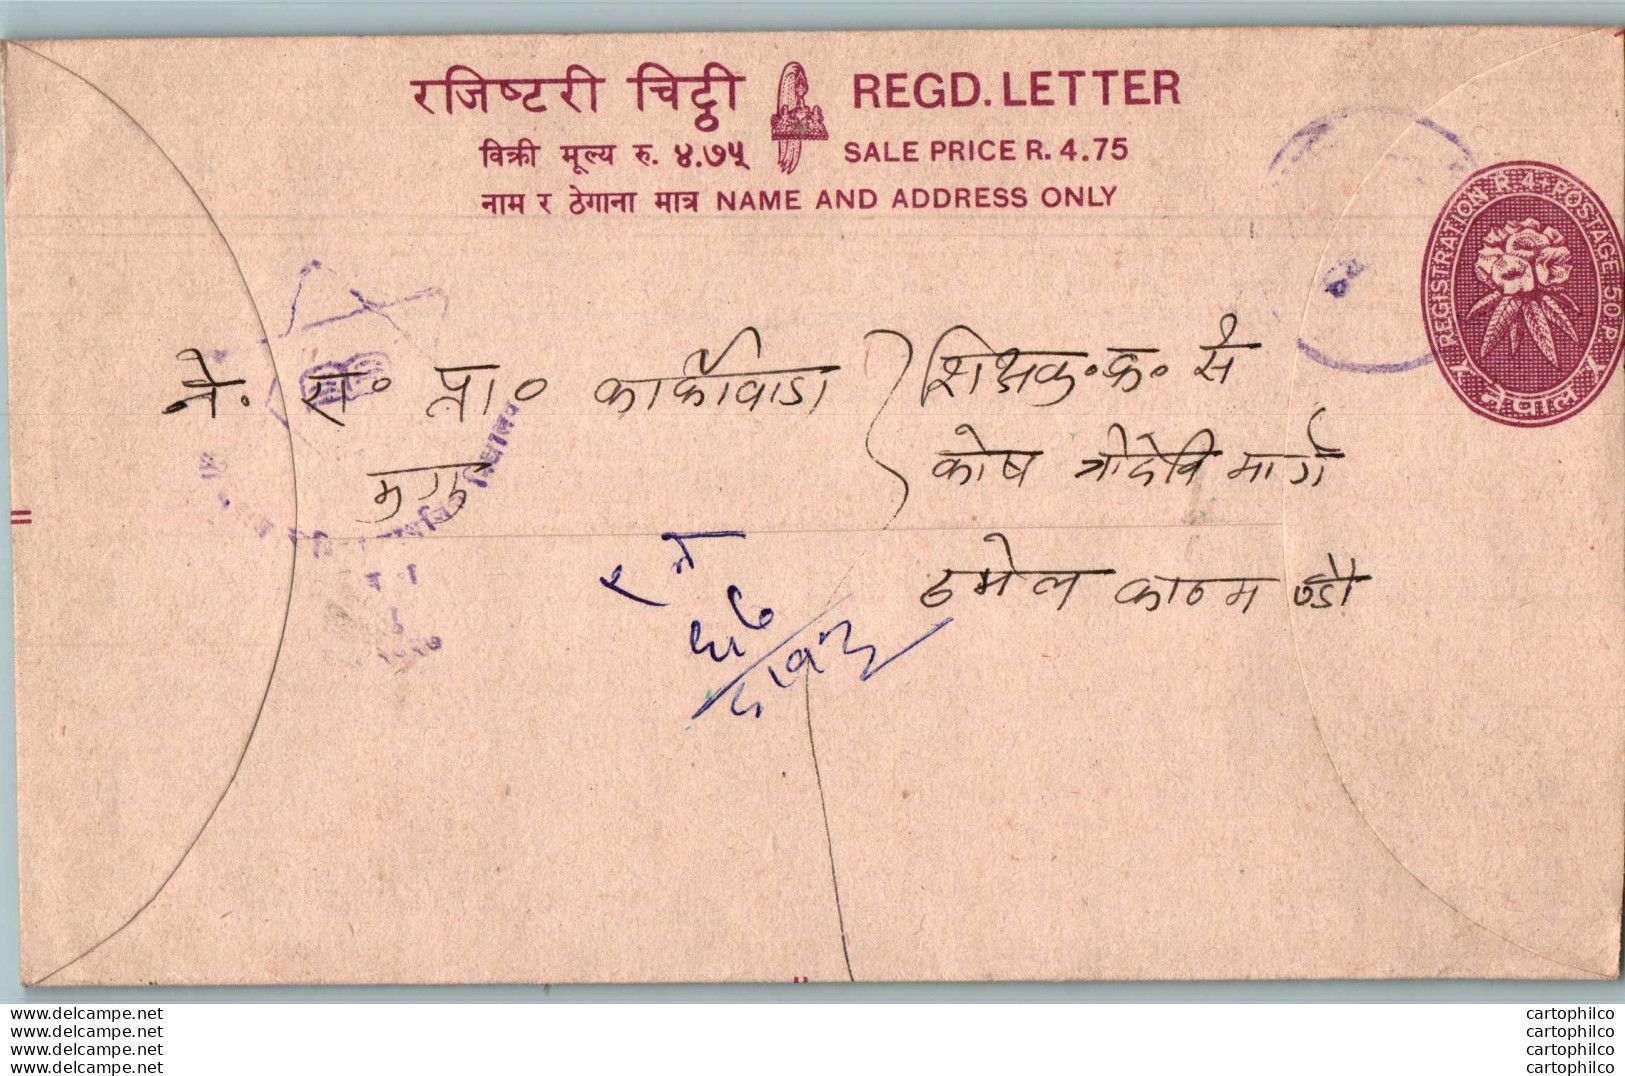 रजिष्टरी चिट्ठी REGD. LETTER
विक्री मूल्य रु. ४.७५ SALE PRICE R. 4.75
नाम र ठेगाना मात्र NAME AND ADDRESS ONLY
REGISTRATION R 4 POSTAGE 50 P.
नेपाल
ने. रा० प्रा० कार्कीवाडा
मुगु
शिक्षक.क. सं
कोष त्रीदेवि मार्ग
ठमेल काठमाण्डौ
www.delcampe.net
www.delcampe.net
www.delcampe.net
www.delcampe.net
cartophilco
cartophilco
cartophilco
cartophilco